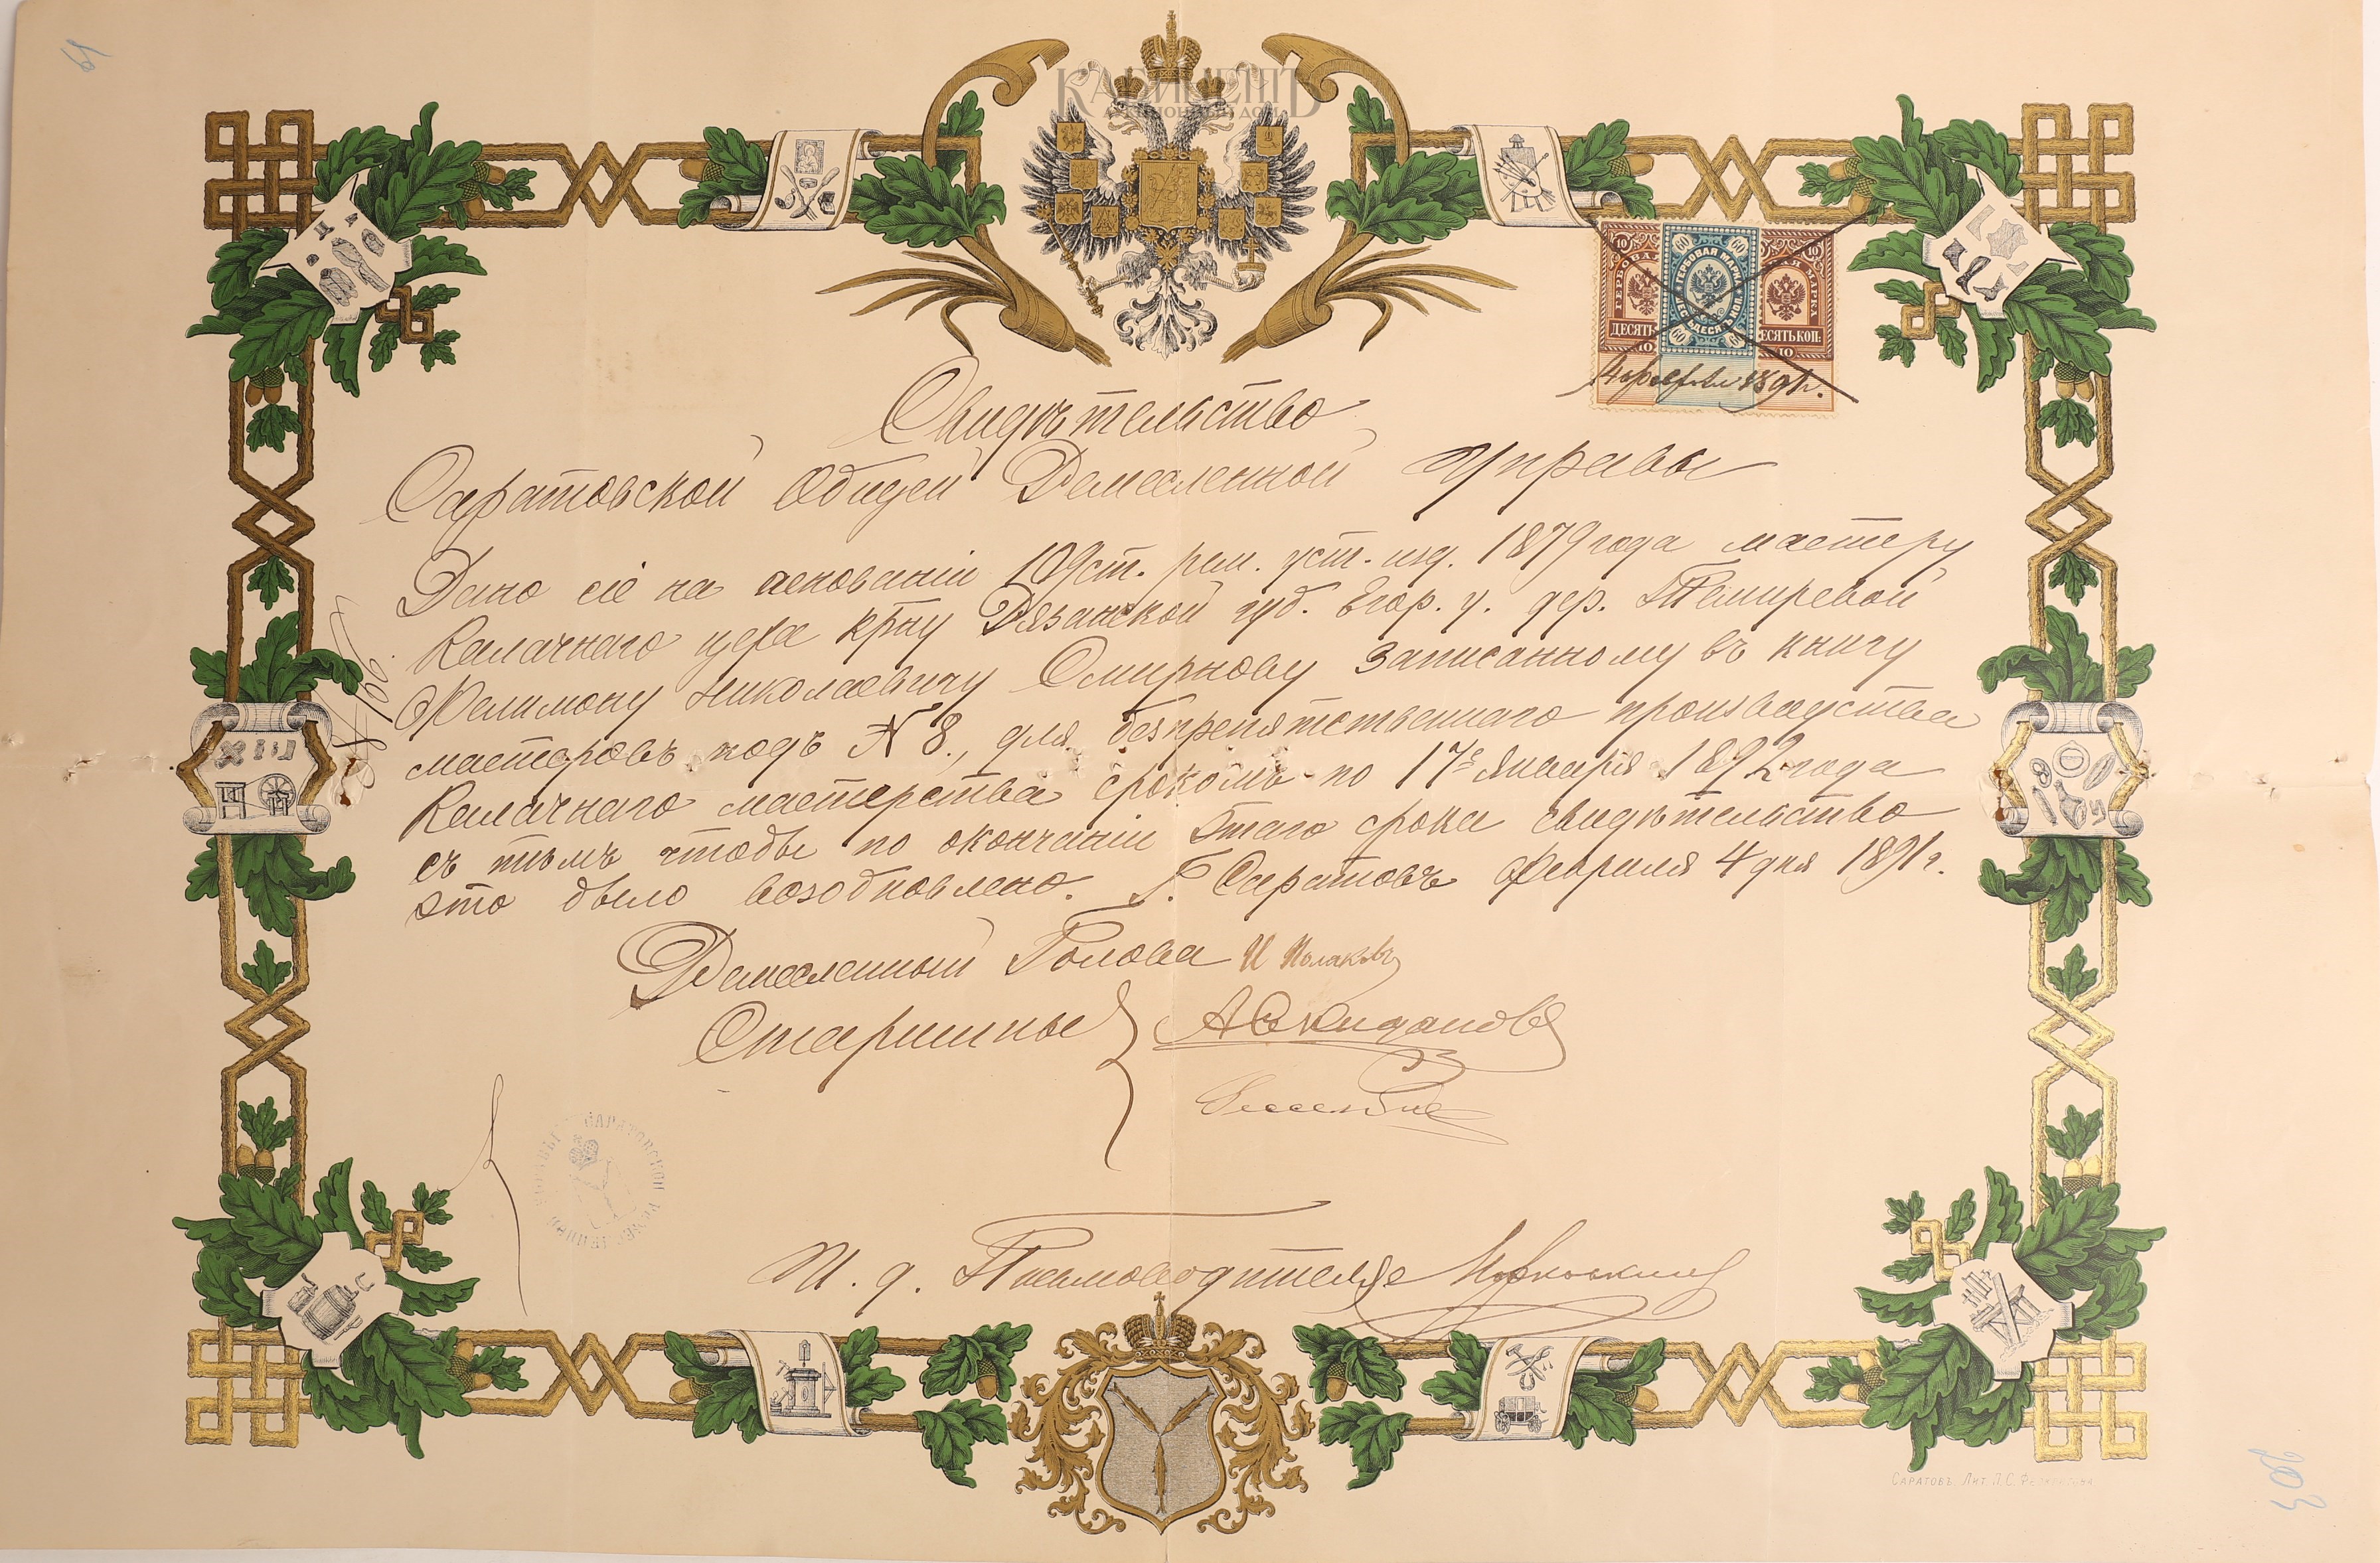 КАБИНЕТЪ
АУКЦИОННЫЙ ДОМ
10
60
60
10
ГЕРБОВАЯ МАРКА
ДЕСЯТЬ
ШЕСТЬДЕСЯТЪ КОП.
ЕСЯТЬ КОП.
10
60
60
10
4 февраля 1891 г.
Свидѣтельство
Саратовской Общей Ремесленной Управы
Дано сіе на основаніи 109 ст. рем. уст. изд. 1879 года мастеру
Калачнаго цеха кр–ну Рязанской губ. Егор. у. дер. Темиревой
Филимону Николаевичу Смирнову записанному въ книгу
мастеровъ подъ № 8, для безпрепятственнаго производства
Калачнаго мастерства срокомъ по 17е Января 1892 года
съ тѣмъ чтобы по окончаніи этаго срока свидѣтельство
это было возобновлено. Г. Саратовъ Февраля 4 дня 1891 г.
Ремесленный Голова И Поляковъ
Старшины
И. д. Письмоводителя
САРАТОВСКОЙ РЕМЕСЛЕННОЙ
САРАТОВЪ. ЛИТ. П. С. ФЕОКРИТОВА
203